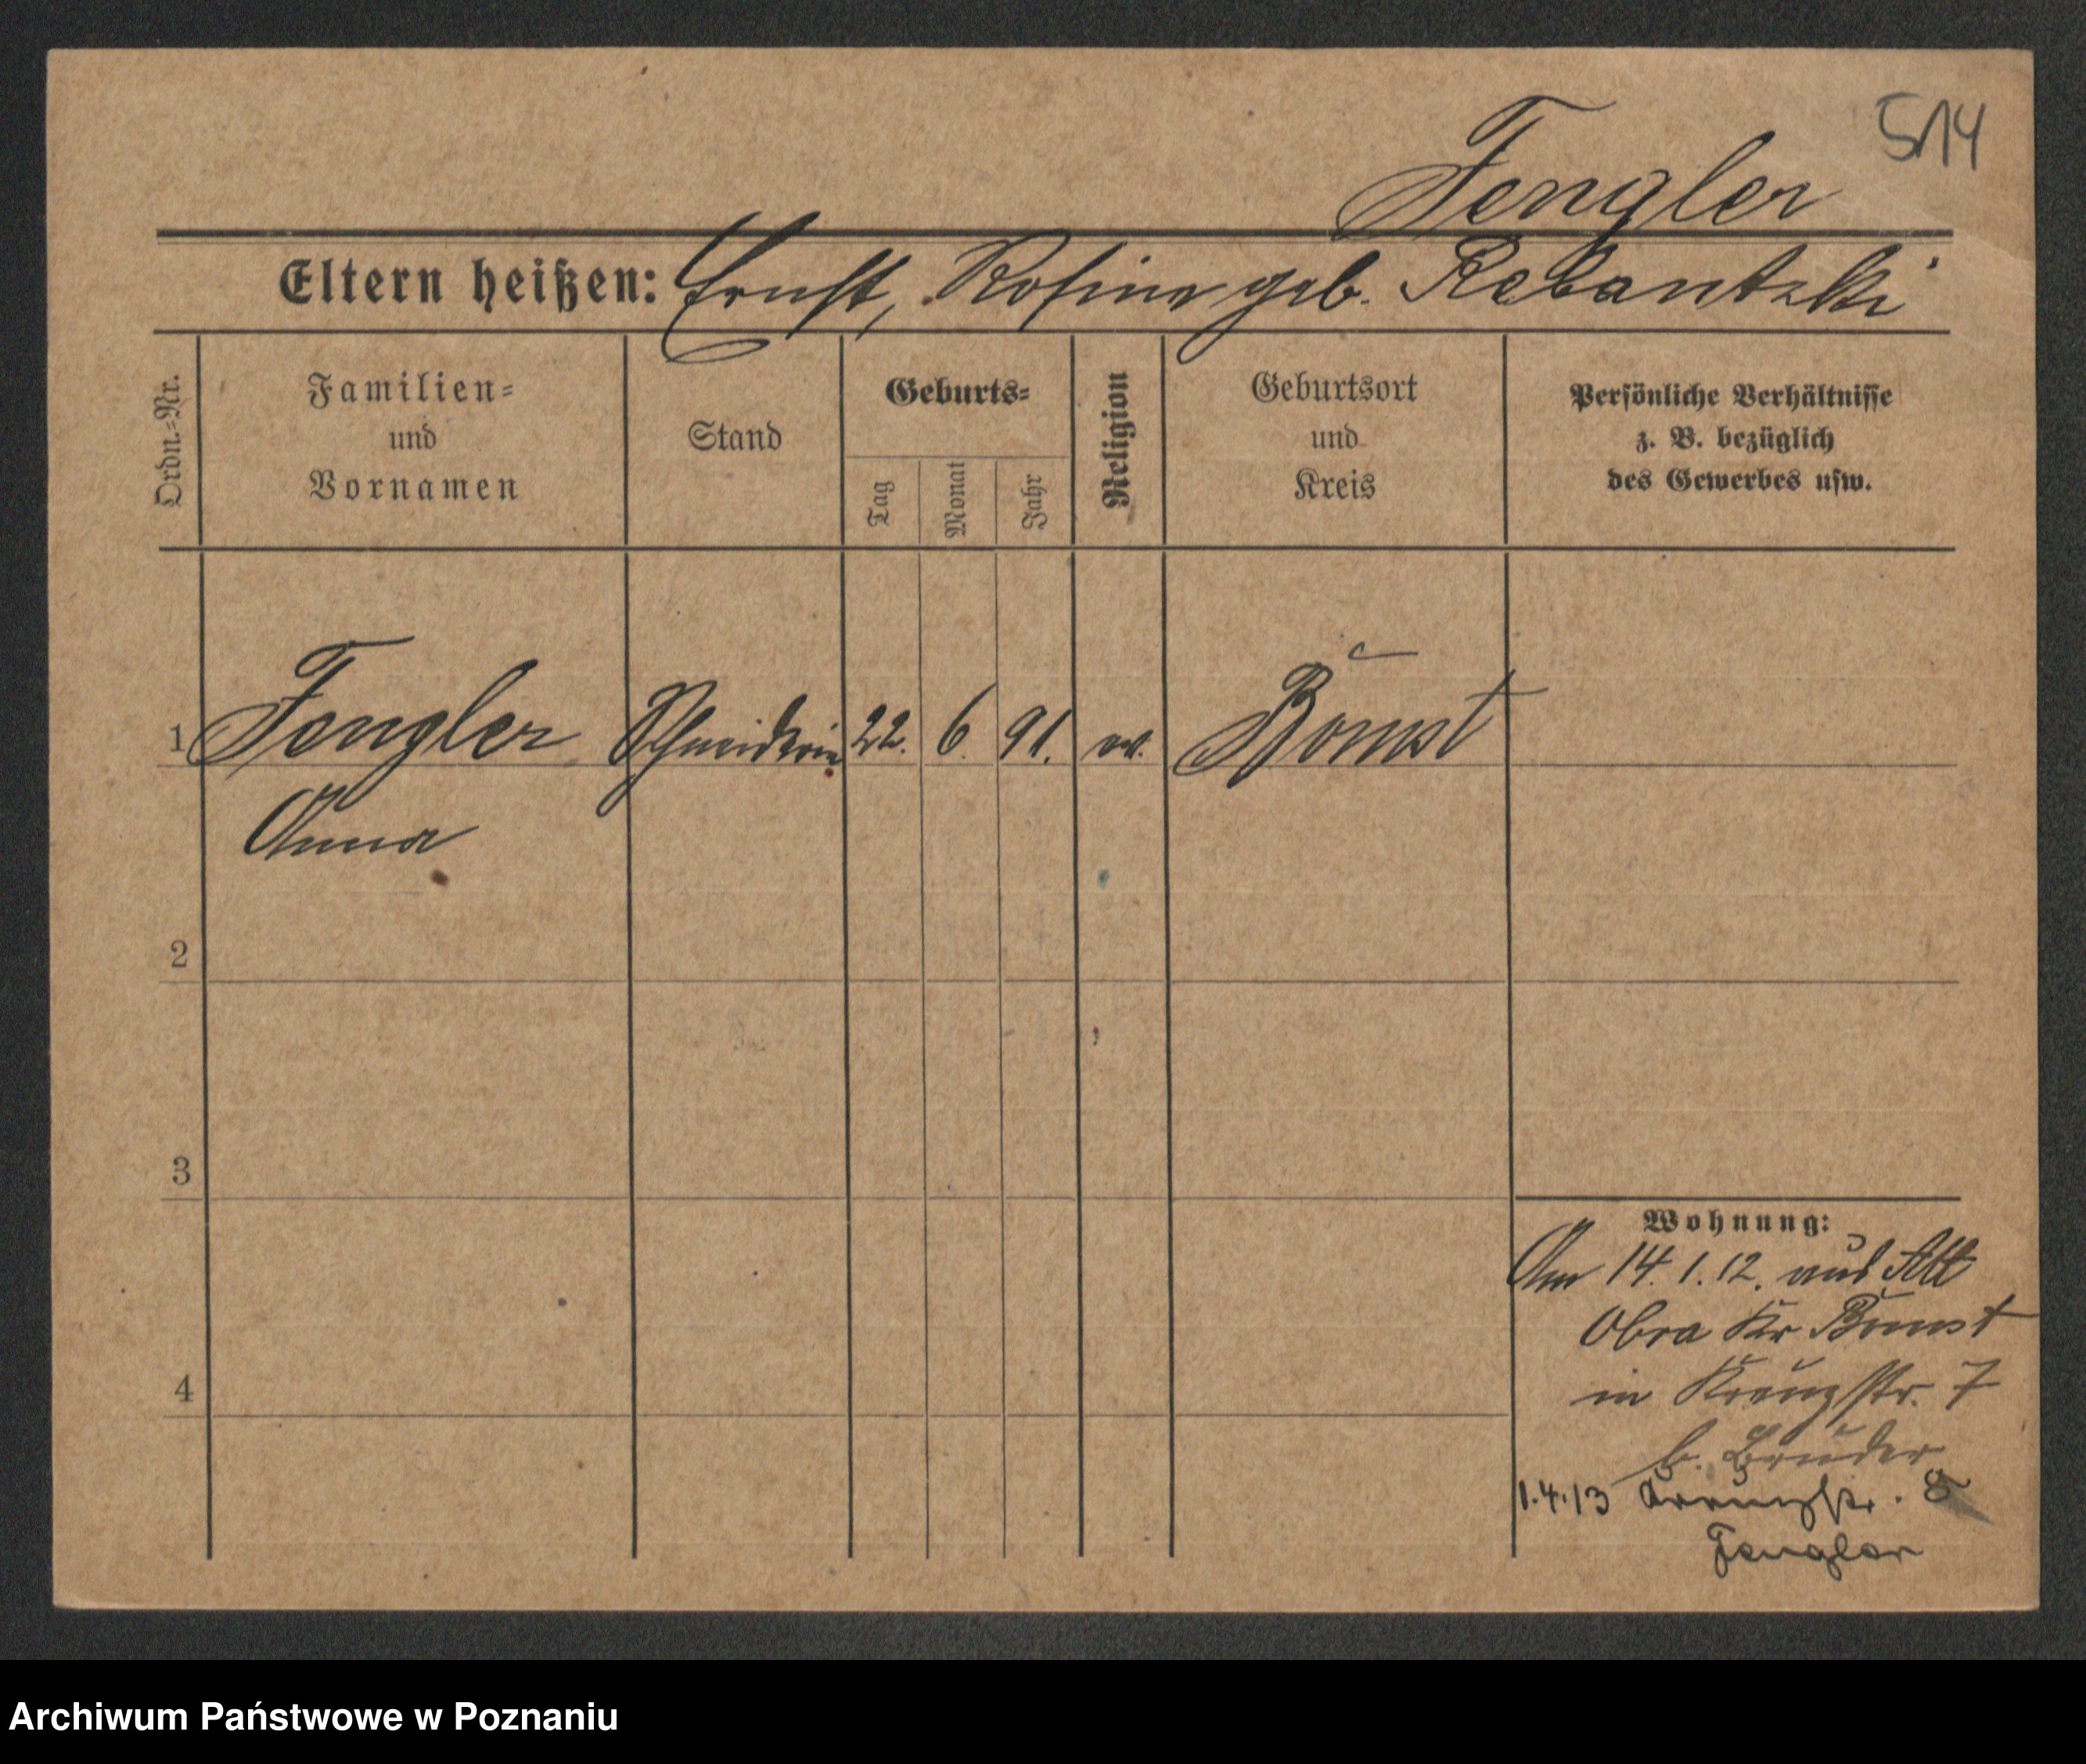 514
Fengler
Eltern heißen: Ernst, Rosine geb. Rebantzki
Ordn.-Nr.
Familien-
und
Vornamen
Stand
Geburts-
Tag
Monat
Jahr
Religion
Geburtsort
und
Kreis
Persönliche Verhältnisse
z. B. bezüglich
des Gewerbes usw.
1 Fengler Schneiderin 22. 6. 91. ev. Bomst
Anna
2
3
4
Wohnung:
Am 14.1.12. aus Alt
Obra Kr Bomst
in Kreuzstr. 7
b. Bruder
1.4.13 Kreuzstr. 8
Fengler
Archiwum Państwowe w Poznaniu